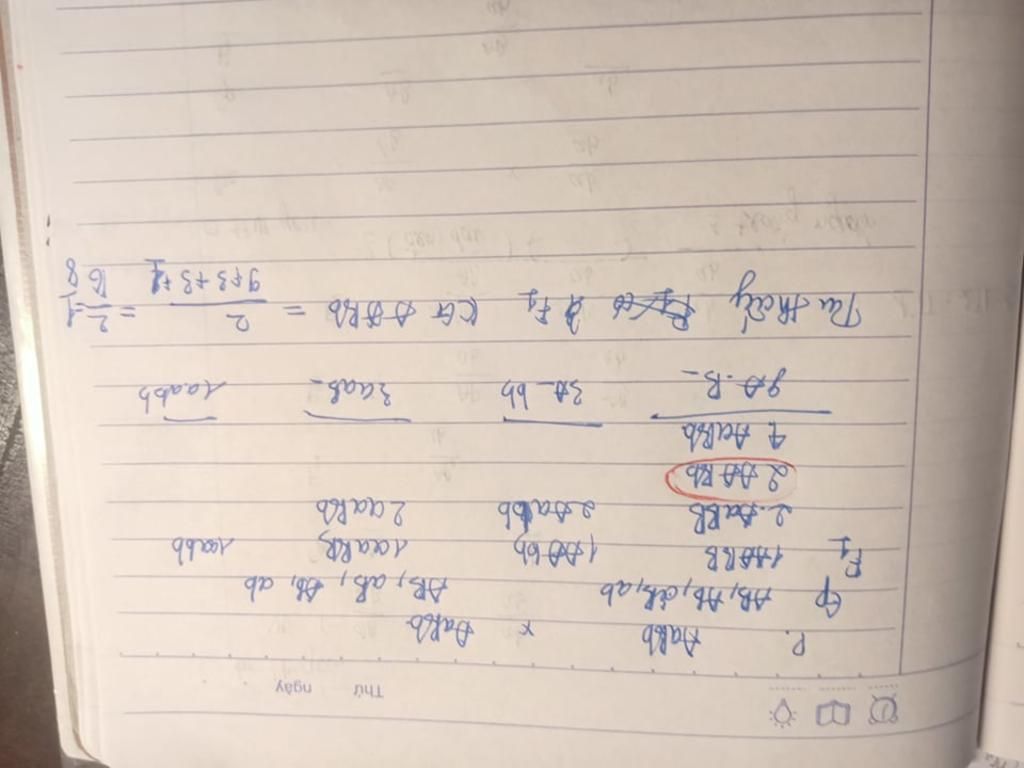 Thứ ngày
P. AaBb x AaBb
Gp AB, Ab, aB, ab AB, aB, Ab, ab
F1 1AABB 1AAbb 1aaBB 1aabb
2.AaBB 2Aabb 2aaBb
2AABb
4.AaBb
9A-B- 3A-bb 3aaB- 1aabb
Ta thấy F1 KG AABb = 2/(9+3+3+1) = 2/16 = 1/8